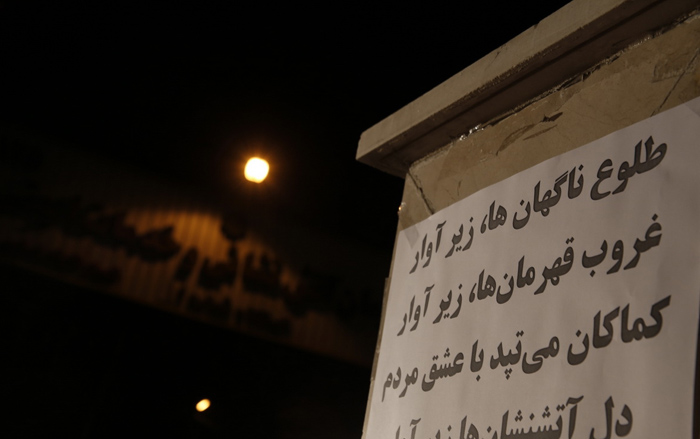 طلوع ناگهان ها، زیر آوار
غروب قهرمان‌ها، زیر آوار
کماکان می‌تپد با عشق مردم
دل آتشنشان‌ها زیر آوار